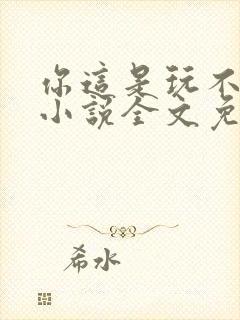 你這是玩不
小說全文免
希水